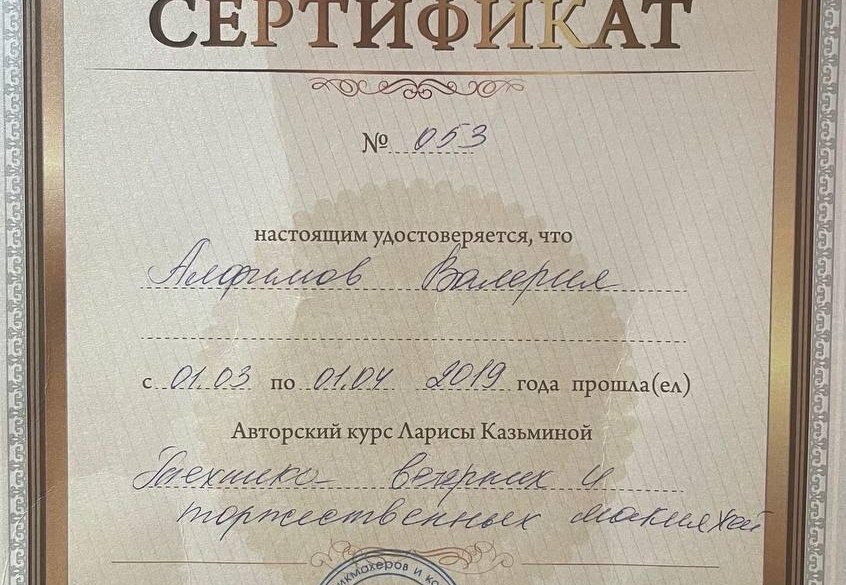 СЕРТИФИКАТ
№ 053
настоящим удостоверяется, что
Алфимов Валерия
с 01.03 по 01.04 2019 года прошла(ел)
Авторский курс Ларисы Казьминой
Техника вечерних и
торжественных макияжей
икмахеров и ко